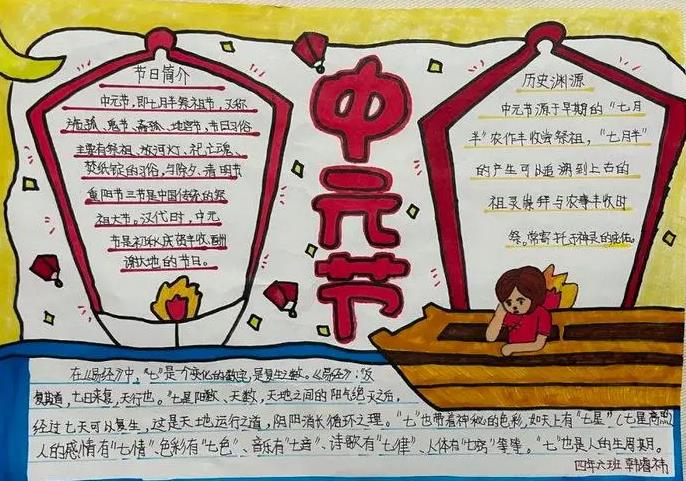 节日简介
中元节,即七月半祭祖节,又称
施孤、鬼节、斋孤、地官节,节日习俗
主要有祭祖、放河灯、祀亡魂、
焚纸锭的习俗,与除夕、清明节
重阳节三节是中国传统的祭
祖大节。汉代时,中元
节是初秋庆贺丰收,酬
谢大地的节日。
中元节
历史渊源
中元节源于早期的“七月
半”农作丰收资祭祖,“七月半”
的产生可以追溯到上古的
祖灵崇拜与农事丰收时
祭。常寄托于神灵的庇佑。
在《易经》中,“七”是一个变化的数字,是复生之数。《易经》:“反
复其道,七日来复,天行也。”七是阳数、天数,天地之间的阳气绝灭之后,
经过七天可以复生,这是天地运行之道,阴阳消长循环之理。“七”也带着神秘的色彩,如天上有“七星”
人的感情有“七情”、色彩有“七色”、音乐有“七音”、诗歌有“七律”、人体有“七窍”等等。“七”也是人的生周期。
四年六班 韩